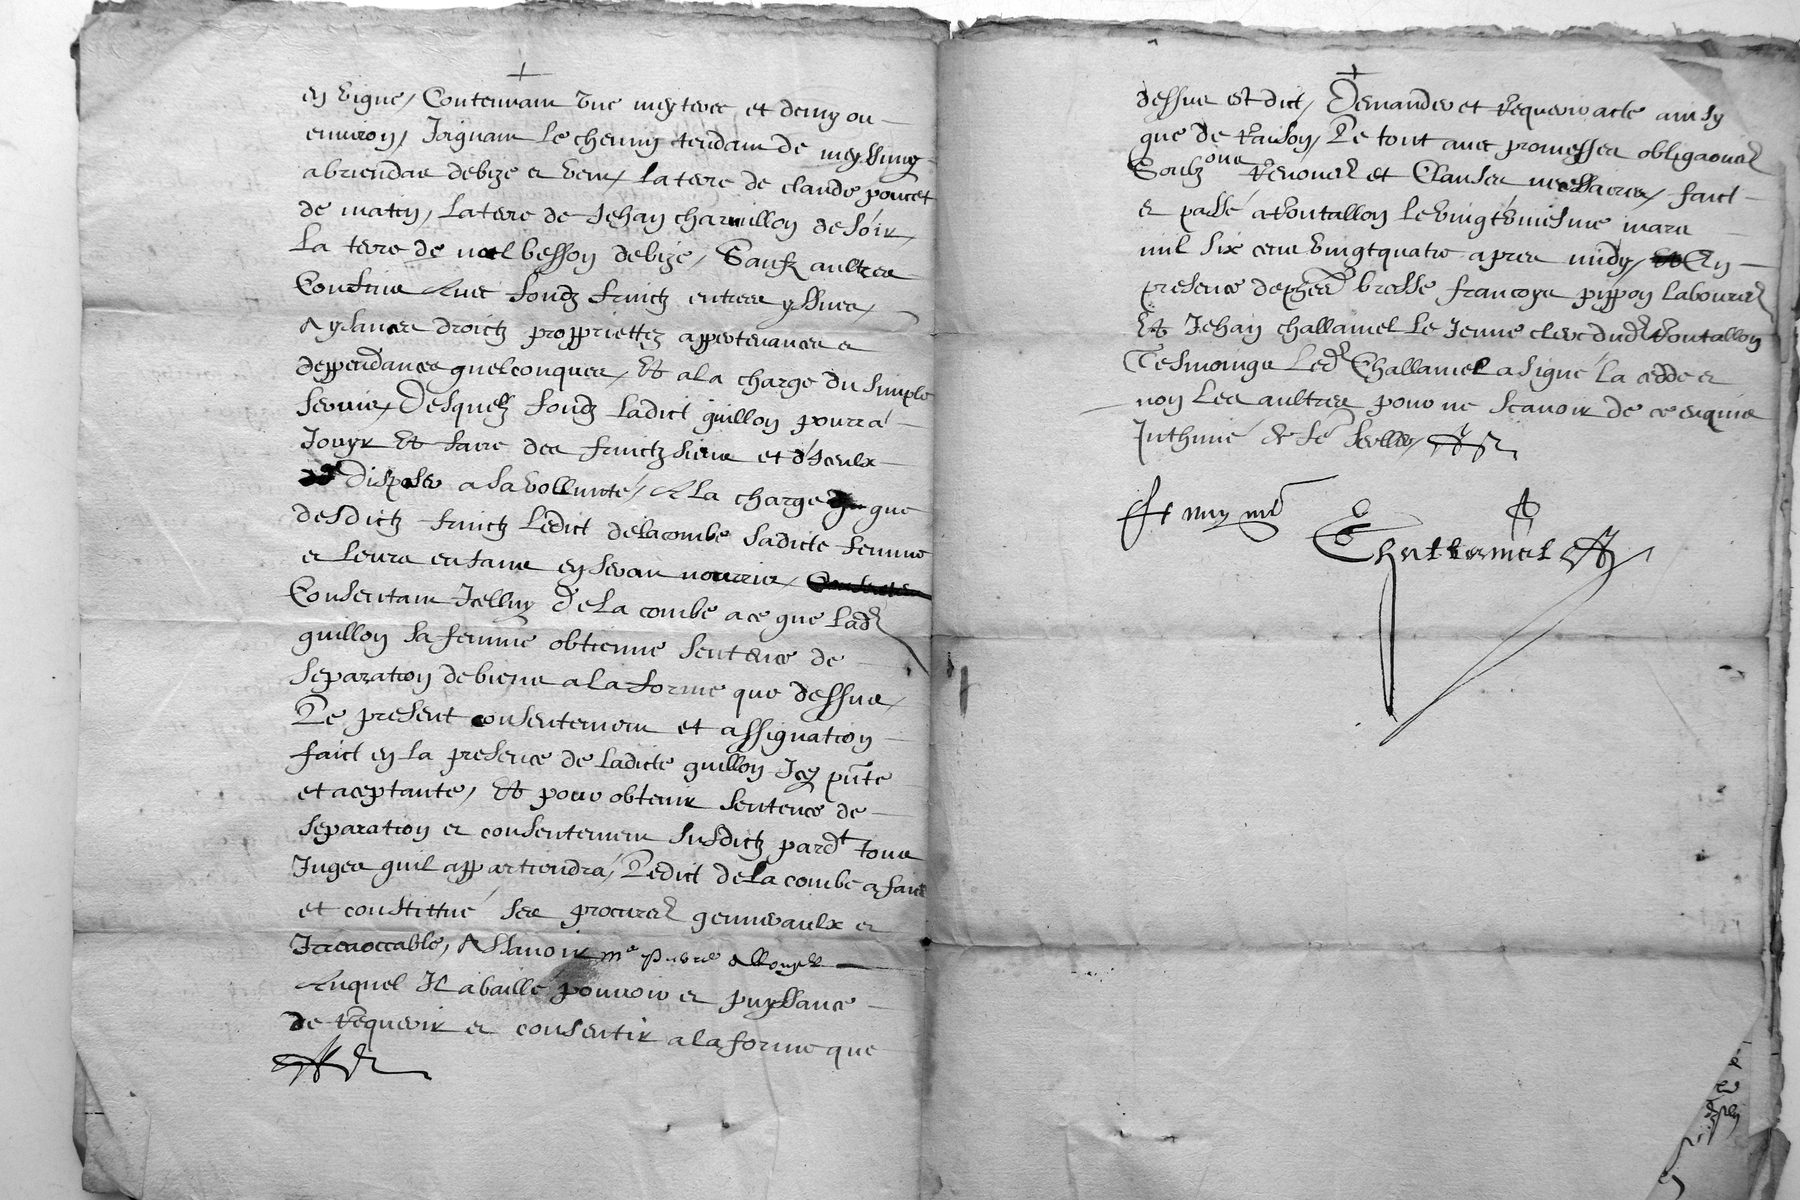 en vigne, Contenant une meyteree et demy ou
environ, Joignant le chemin tendant de meyssimy
a briendas debize et vent, la terre de claude poncet
de matin, la terre de Jehan charvillon de soir,
La terre de noel besson debize, Sauf aultres
Confins Avec fondz fruictz entrees yssues,
Aysances droictz propprietez appertenances et
deppendances quelconques, Et a la charge du simple
servis, Desquelz fondz ladict guillon pourra
Jouyr Et faire des fruictz siens et d'Iceulx
Disposer a sa vollunté, A la charge que
desdictz fruictz Ledict delacombe sadicte femme
et leurs enfans en seront nourris,
Consentant Icelluy De La combe a ce que lad
guillon sa femme obtienne sentence de
separation de biens a la forme que dessus,
Le present consentement et assignation
faict en la presence de ladicte guillon Icy pnte
et aceptante, Et pour obtenir sentence de
separation et consentement susdictz pardt tous
Juges quil appartiendra, Ledict de La combe a faict
et constittué ses procureurs generaulx et
Irrevoccable, Assavoir me Pierre
Auquel Il a baillé pouvoir et puyssance
de Requerir et consentir a la forme que
dessus est dict, Demander et Requerir acte ainsy
que de Raison, Le tout avec promesses obligaons
Soubz Renons et Clauses necessaires, faict
et passé a Vontallon le vingtviesme mars
mil six cens vingtquatre apres midy, En
presence de brosse francoys pippon laboureur
Et Jehan challamel Le Jeune clerc dud Vontallon
Tesmoings Led Challamel a signé la cedde et
non Les aultres pour ne scavoir de ce enquis
Inthimé de fe seeller,
Et moy nre
Challamel